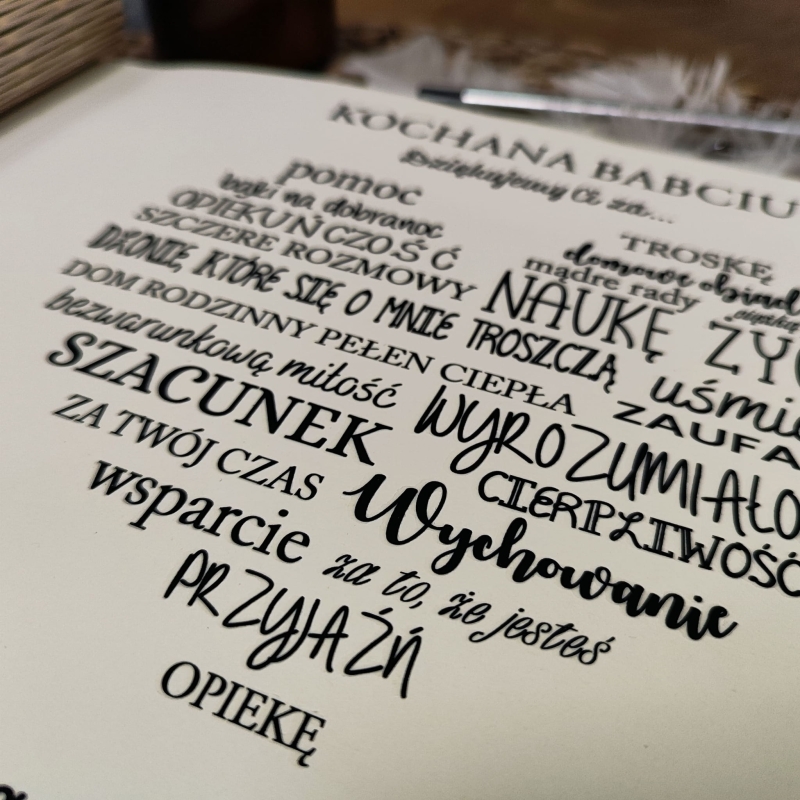 KOCHANA BABCIU
Dziękujemy Ci za...
pomoc
bajki na dobranoc
OPIEKUŃCZOŚĆ
TROSKĘ
SZCZERE ROZMOWY
domowe
mądre rady
DŁONIE, KTÓRE SIĘ O MNIE TROSZCZĄ
NAUKĘ
DOM RODZINNY PEŁEN CIEPŁA
bezwarunkową miłość
SZACUNEK
WYROZUMIAŁO
ZA TWÓJ CZAS
CIERPLIWOŚĆ
wsparcie
Wychowanie
za to, że jesteś
PRZYJAŹŃ
OPIEKĘ